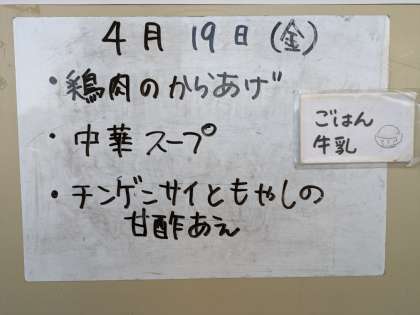 4月19日(金)
・鶏肉のからあげ
・中華スープ
・チンゲンサイともやしの
甘酢あえ
ごはん
牛乳